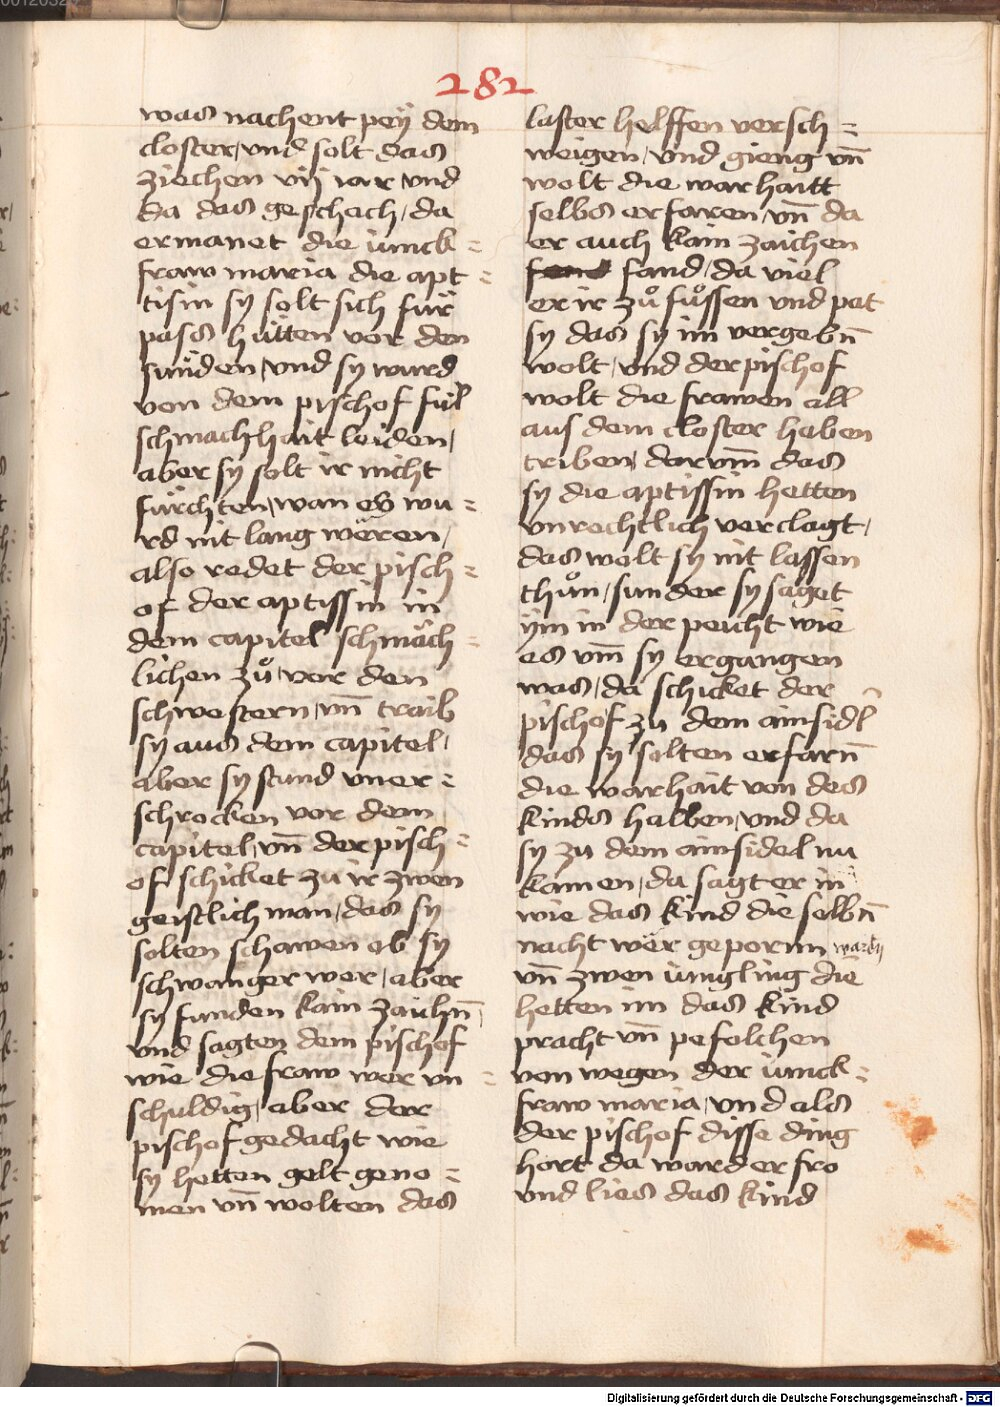 282
was nachent peÿ dem
closter, vnd solt das
ziechen vij iar vnd
da das geschech, da
ermanet die iunck =
fraw maria die apt =
tisin sy solt sich für
pass hütten vor den
sunden, vnd sy wurd
von dem pischof fül
schmachhait leiden,
aber sy solt ir nicht
fürchten, wan es wu =
rd nit lang weren,
also redet der pisch =
of der aptissin in
dem capitel schmäch =
lichen zů, vor den
schwestern, vn̄ traib
sy aus dem capitel,
aber sy stund vner =
schrocken vor dem
capitel, vn̄ der pisch =
of schicket zu ir zwen
geistlich man, das sy
solten schawen ob sy
schwanger wer, aber
sy funden kain zaichn̄,
vnd sagten dem pischof
wie die fraw wer vn =
schuldig, aber der
pischof gedacht wie
sy hetten gelt geno =
men vn̄ wolten das
laster helffen versch =
weigen, vnd gieng vn̄
wolt die warhaitt
selbs erfaren, vn̄ da
er auch kain zaichen
fand, da viel
er ir zů fůssen vnd pat
sy das sy im vergebn̄
wolt, vnd der pischof
wolt die frawen all
aus dem closter haben
triben, darvm̄ das
sy die aptissin hetten
vnrechtlich verclagt,
das wolt sy nit lassen
thůn, sunder sy saget
ÿm in der peicht wie
es vm̄ sy ergangen
was, da schicket der
pischof zu dem ainsidl
das sy solten erfarn̄
die warhait von des
kinds halben, vnd da
sy zu dem ainsidel nu
kamen, da sagt er in
wie das kind die selbn̄
nacht wër gepornn wardn
vn̄ zwen iungling die
hetten im das kind
pracht vn̄ pefolchen
von wegen der iunck =
fraw maria, vnd als
der pischof disse ding
hort da ward er fro
vnd lies das kind
Digitalisierung gefördert durch die Deutsche Forschungsgemeinschaft - DFG